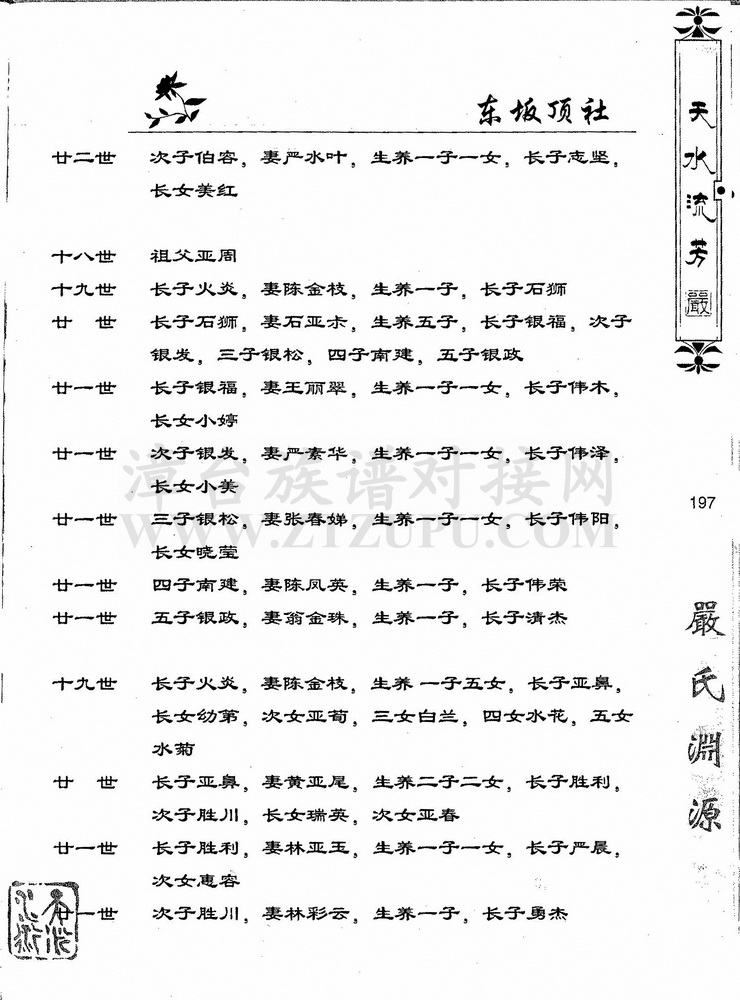 东坂顶社
廿二世 次子伯容，妻严水叶，生养一子一女，长子志坚，
长女美红
十八世 祖父亚周
十九世 长子火炎，妻陈金枝，生养一子，长子石狮
廿 世 长子石狮，妻石亚尗，生养五子，长子银福，次子
银发，三子银松，四子南建，五子银政
廿一世 长子银福，妻王丽翠，生养一子一女，长子伟木，
长女小婷
廿一世 次子银发，妻严素华，生养一子一女，长子伟泽，
长女小美
廿一世 三子银松，妻张春娣，生养一子一女，长子伟阳，
长女晓莹
廿一世 四子南建，妻陈凤英，生养一子，长子伟荣
廿一世 五子银政，妻翁金珠，生养一子，长子清杰
十九世 长子火炎，妻陈金枝，生养 一子五女，长子亚鼻，
长女幼第，次女亚荀，三女白兰，四女水花，五女
水菊
廿 世 长子亚鼻，妻黄亚尾，生养二子二女，长子胜利，
次子胜川，长女瑞英，次女亚春
廿一世 长子胜利，妻林亚玉，生养一子一女，长子严晨，
次女惠容
廿一世 次子胜川，妻林彩云，生养一子，长子勇杰
天水流芳
嚴
197
嚴氏淵源
漳台族谱对接网
WWW.ZTZUPU.COM